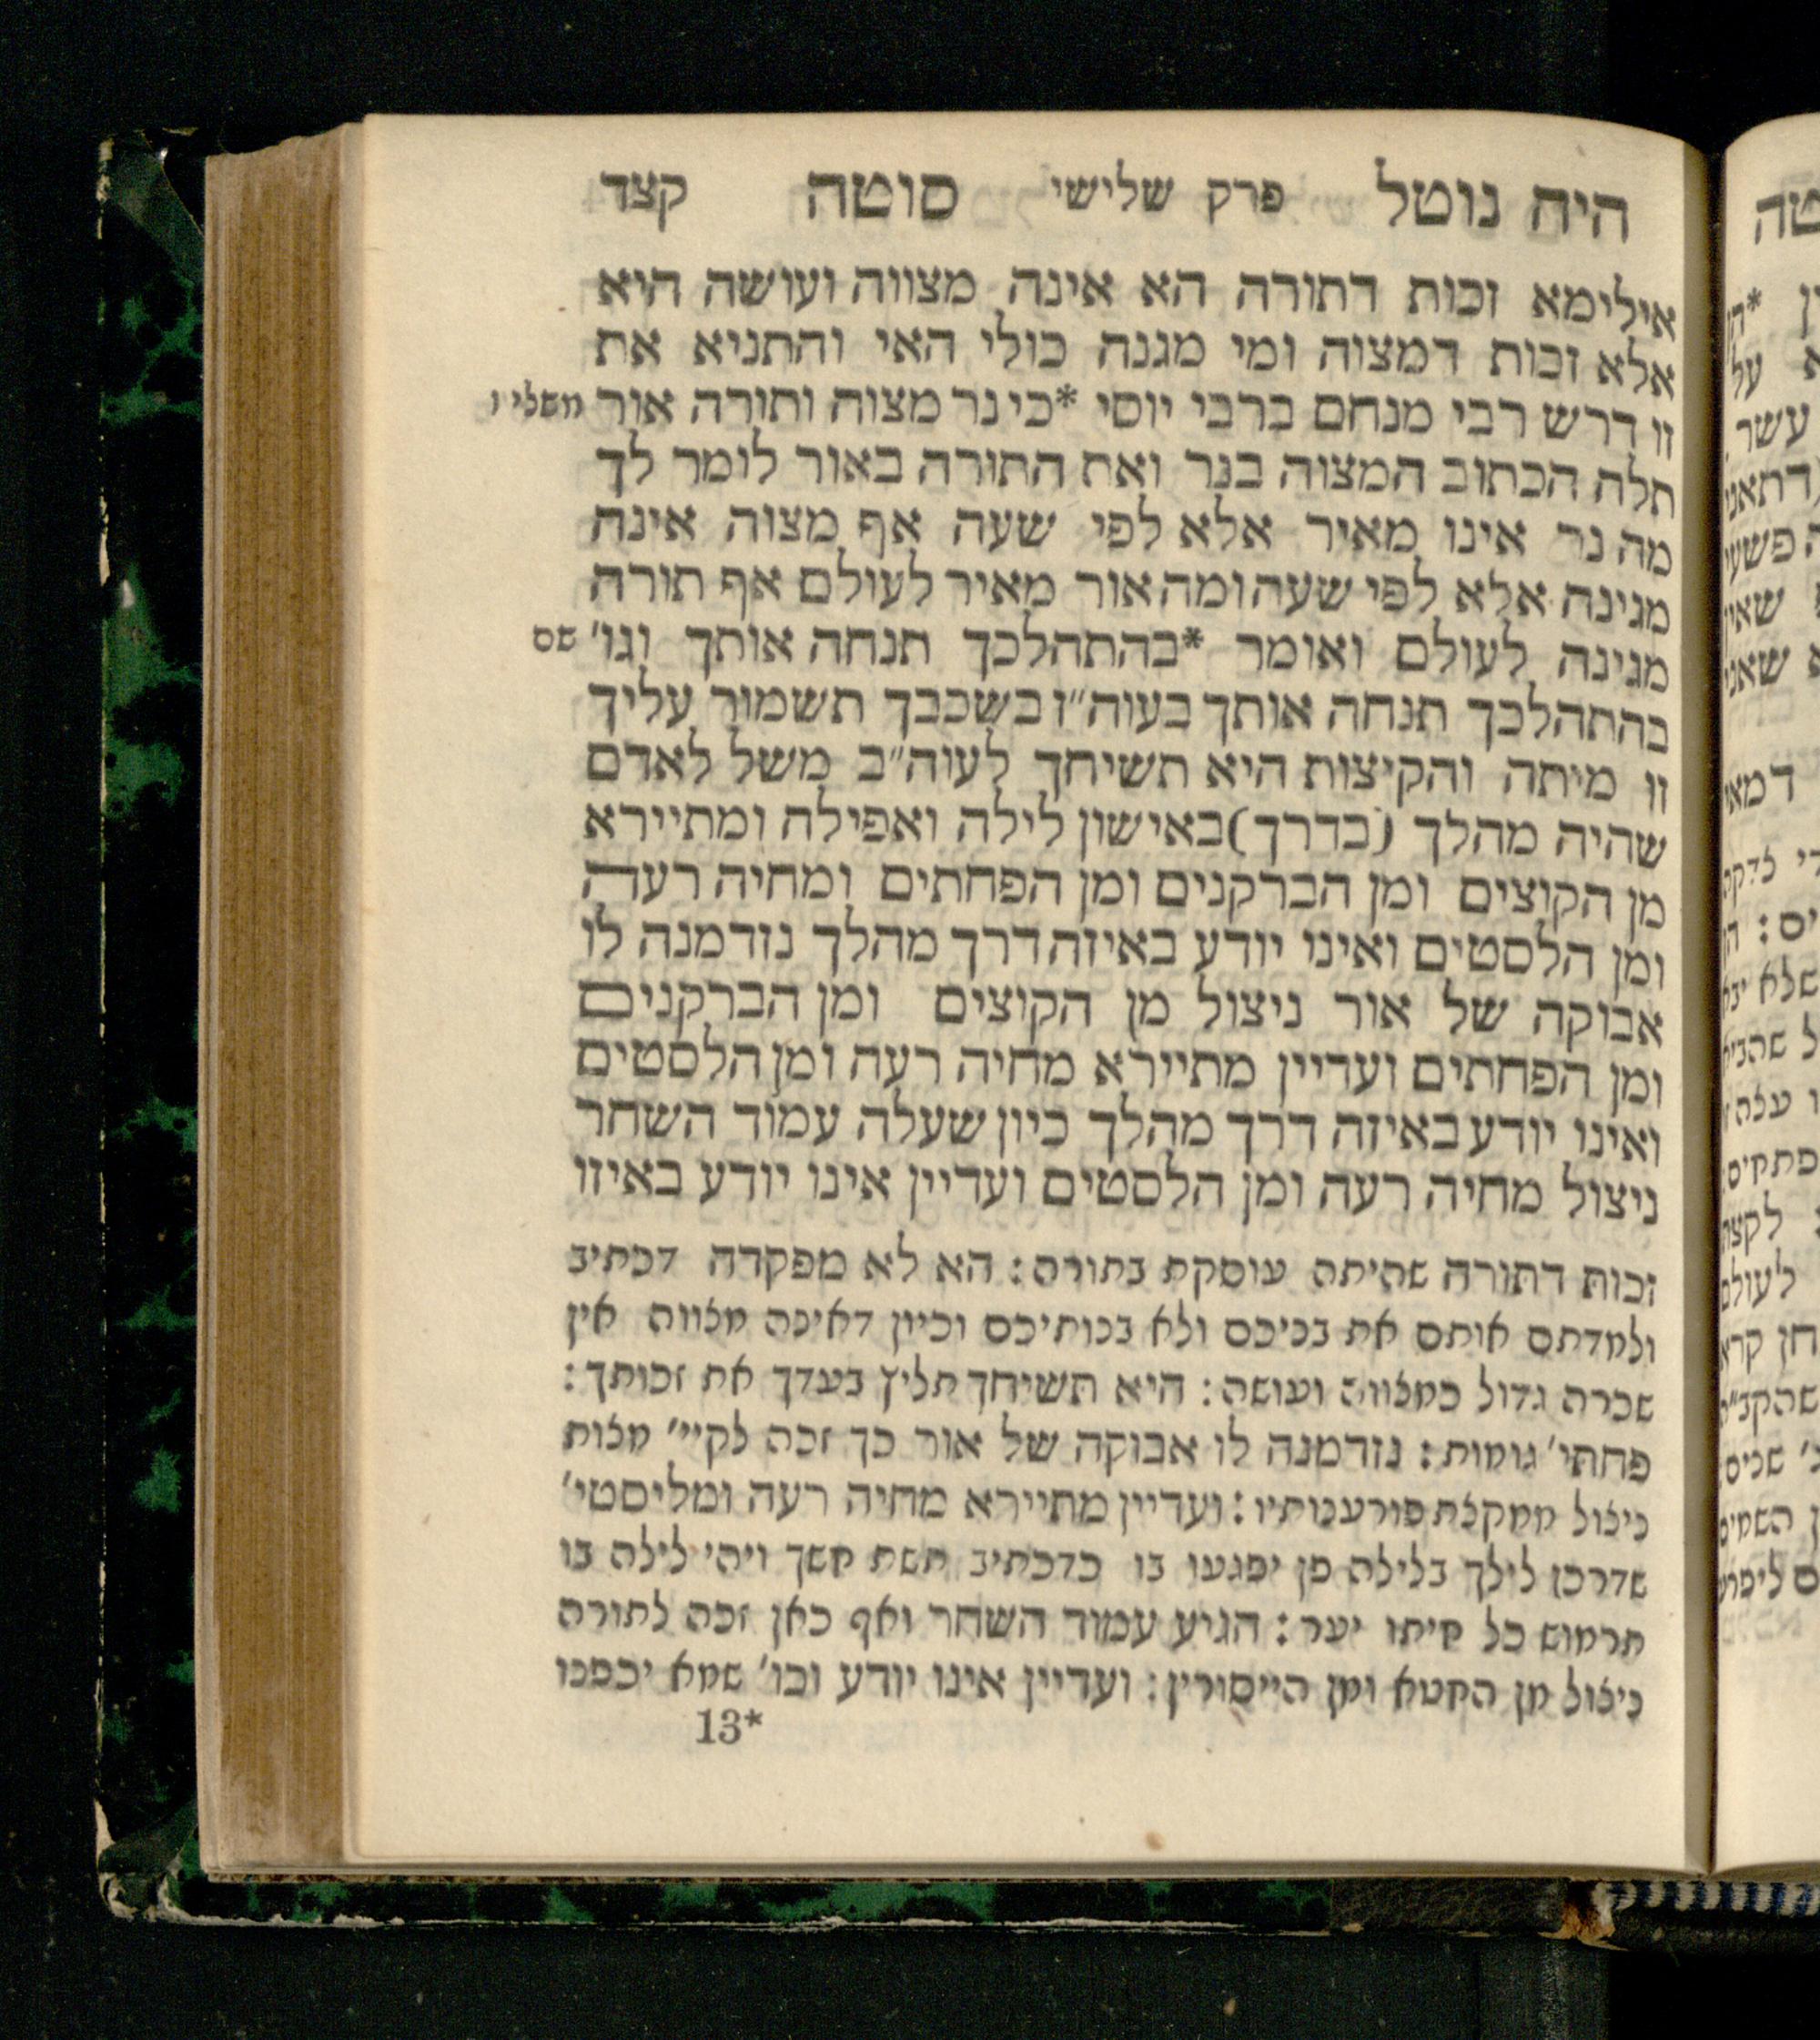 היה נוטל פרק שלישי סוטה קצד
אילימא זכות דתורה הא אינה מצווה ועושה היא
אלא זכות דמצוה ומי מגנה כולי האי והתניא את
זו דרש רבי מנחם ברבי יוסי *כי נר מצוה ותורה אור משלי ו
תלה הכתוב המצוה בנר ואת התורה באור לומר לך
מה נר אינו מאיר אלא לפי שעה אף מצוה אינה
מגינה אלא לפי שעה ומה אור מאיר לעולם אף תורה
מגינה לעולם ואומר *בהתהלכך תנחה אותך וגו׳ שם
בהתהלכך תנחה אותך בעוה״ז בשכבך תשמור עליך
זו מיתה והקיצות היא תשיחך לעוה״ב משל לאדם
שהיה מהלך (בדרך) באישון לילה ואפילה ומתיירא
מן הקוצים ומן הברקנים ומן הפחתים ומחיה רעה
ומן הלסטים ואינו יודע באיזה דרך מהלך נזדמנה לו
אבוקה של אור ניצול מן הקוצים ומן הברקנים
ומן הפחתים ועדיין מתיירא מחיה רעה ומן הלסטים
ואינו יודע באיזה דרך מהלך כיון שעלה עמוד השחר
ניצול מחיה רעה ומן הלסטים ועדיין אינו יודע באיזו
זכות דתורה שהיתה עוסקת בתורה: הא לא מפקדה דכתיב
ולמדתם אותם את בניכם ולא בנותיכם וכיון דאינה מצווה אין
שכרה גדול כמצווה ועושה: היא תשיחך תליץ בעדך את זכותך:
פחתי׳ גומות: נזדמנה לו אבוקה של אור כך זכה לקיי׳ מצות
ניצול ממקצת פורענותיו: ועדיין מתיירא מחיה רעה ומליסטי׳
שדרכן לילך בלילה פן יפגעו בו כדכתיב תשת חשך ויהי לילה בו
תרמוש כל חיתו יער: הגיע עמוד השחר ואף כאן זכה לתורה
ניצול מן החטא ומן הייסורין: ועדיין אינו יודע וכו׳ שמא יכפנו
13*